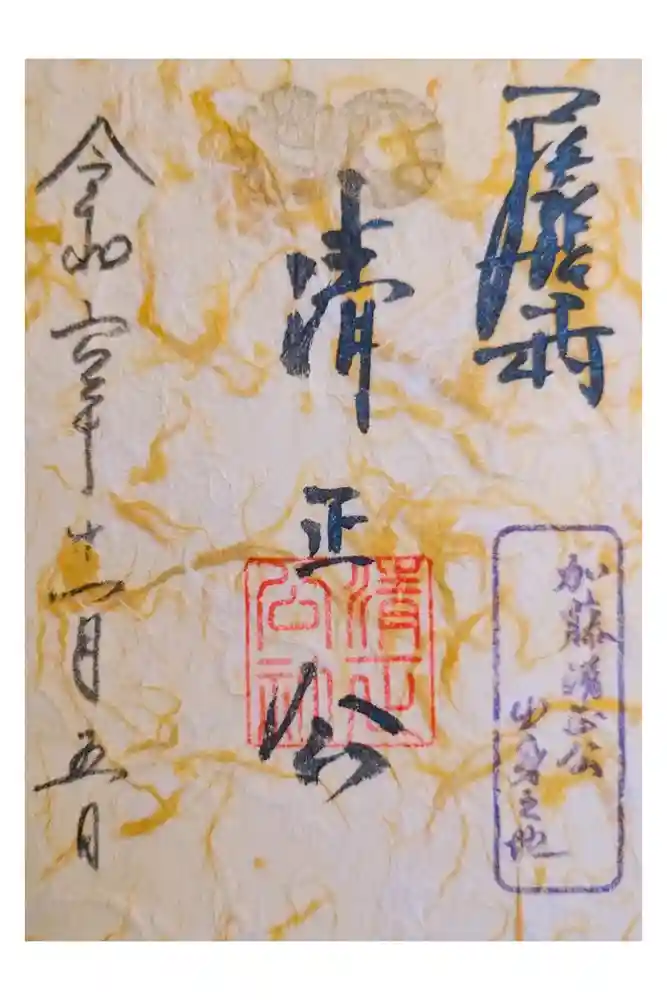 清正公
清正
公社
加藤清正公
出身之地
令和六年十一月五日